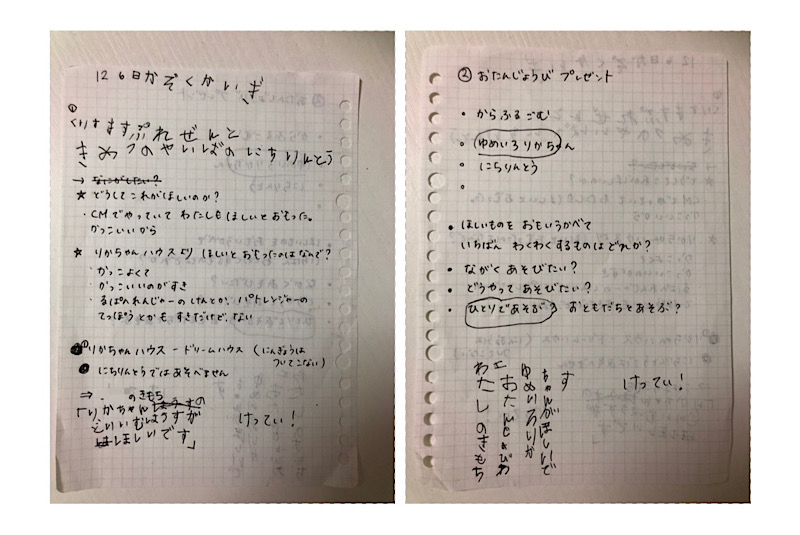 12 6日かぞくかいぎ
①
くりすますぷれぜんと
きめつのやいばのにちりんとう
→ なにがしたい?
★ どうしてこれがほしいのか?
・CMでやっていて わたしもほしいとおもった。
かっこいいから
★ りかちゃんハウスより ほしいとおもったのはなんで?
・かっこよくて
・かっこいいのがすき
・るぱんれんじゃーのけんとか、パトレンジャーの
てっぽうとかも、すきだけど、ない
①りかちゃんハウス ー ドリームハウス (にんぎょうは
ついてこない)
にちりんとうではあそべません
⇒ のきもち
「りかちゃん
ほしいです」
けってい!
② おたんじょうび プレゼント
・ からふるごむ
・ ゆめいろりかちゃん
・ にちりんとう
・
• ほしいものを おもいうかべて
いちばん わくわくするものは どれか?
• ながく あそびたい?
• どうやって あそびたい?
• ひとりであそぶ? おともだちとあそぶ?
わたしのきもち
おたんじょびわ
ゆめいろりか
ちゃんがほしいで
す
けってい!